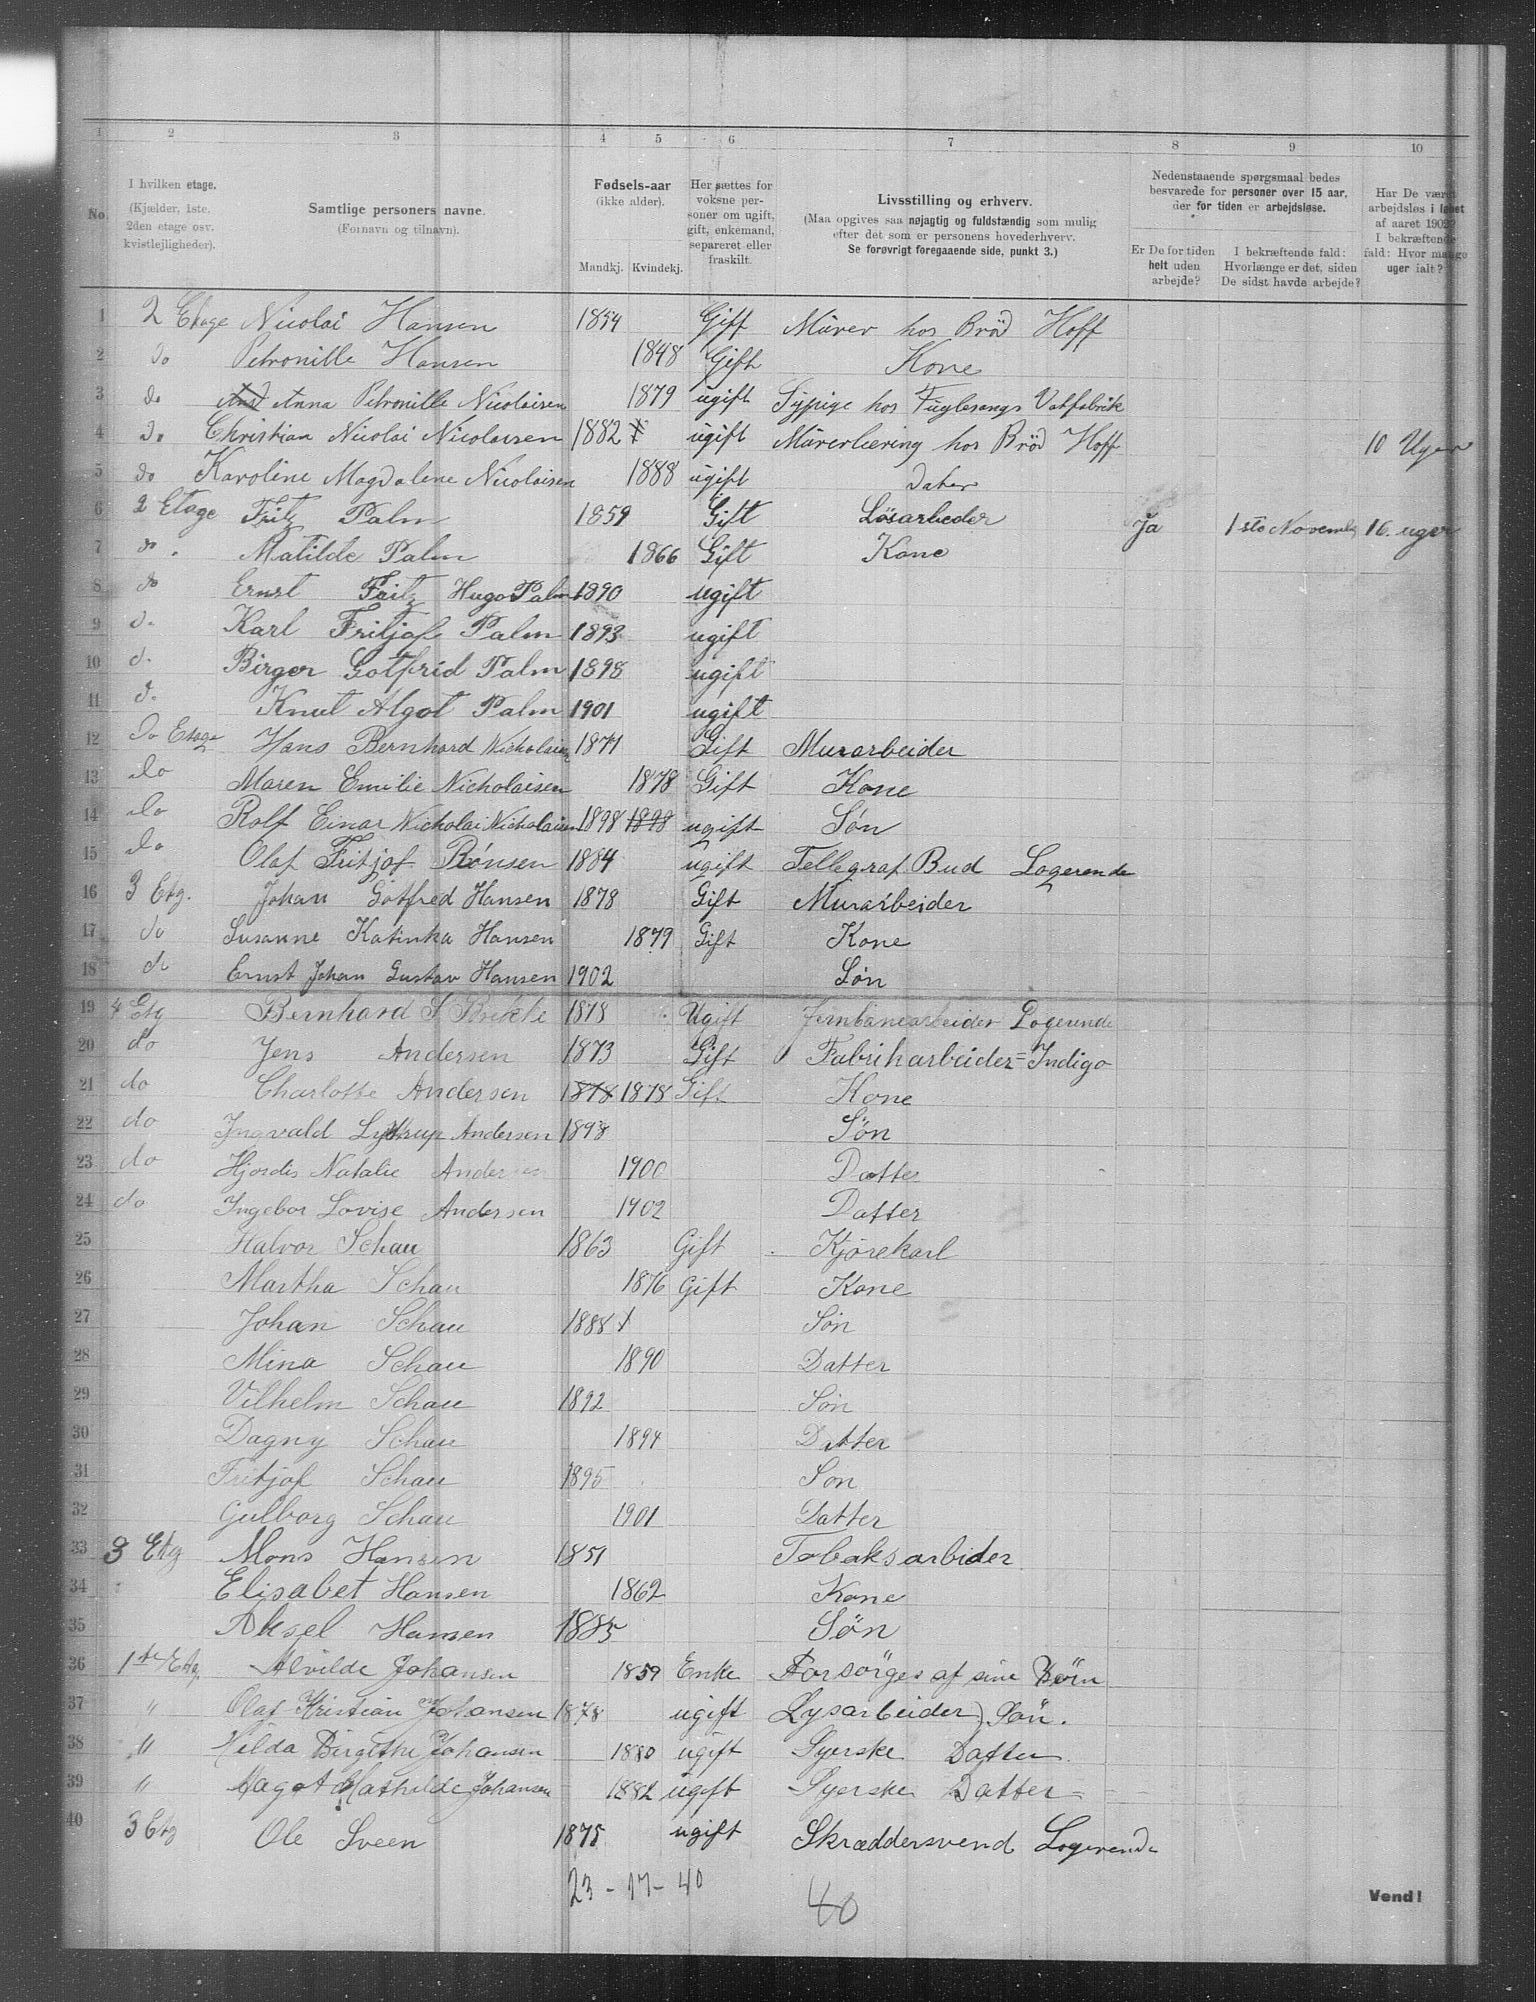 1 2 3 4 5 6 7 8 9 10
No.
I hvilken etage.
(Kjælder, 1ste,
2den etage osv.
kvistlejligheder).
Samtlige personers navne.
(Fornavn og tilnavn).
Fødsels-aar
(ikke alder).
Mandkj. Kvindekj.
Her sættes for
voksne per-
soner om ugift,
gift, enkemand,
separeret eller
fraskilt.
Livsstilling og erhverv.
(Maa opgives saa nøjagtig og fuldstændig som mulig
efter det som er personens hovederhverv.
Se forøvrigt foregaaende side, punkt 3.)
Nedenstaaende spørgsmaal bedes
besvarede for personer over 15 aar,
der for tiden er arbejdsløse.
Er De for tiden
helt uden
arbejde?
I bekræftende fald:
Hvorlænge er det, siden
De sidst havde arbejde?
Har De været
arbejdsløs i løbet
af aaret 1902?
I bekræftende
fald: Hvor mange
uger ialt?
1 2 Etage Nicolai Hansen 1854 Gift Mürer hos Bröd Hoff
2 do Petronille Hansen 1848 Gift Kone
3 do Anna Petronille Nicolaisen 1879 ugift Sypige hos Fuglesangs Vatfabrik
4 do Christian Nicolai Nicolaisen 1882 ugift Mürerlæring hos Bröd Hoff 10 Uger
5 do Karoline Magdalene Nicolaisen 1888 ugift Dater
6 2 Etage Fritz Palm 1859 Gift Løsarbeder Ja 1ste November 16. uger
7 do. Matilde Palm 1866 Gift Kone
8 do Ernst Fritz Hugo Palm 1890 ugift
9 d. Karl Fritjof Palm 1893 ugift
10 d. Birger Gotfrid Palm 1898 ugift
11 d. Knut Algot Palm 1901 ugift
12 Do Etage Hans Bernhard Nicholaisen 1871 Gift Murarbeider
13 Do Maren Emilie Nicholaisen 1878 Gift Kone
14 Do Rolf Einar Nicholai Nicholaisen 1898 1898 ugift Søn
15 Do Olaf Fritjof Rönsen 1884 ugift Tellegraf Bud Logerende
16 3 Etg. Johan Gotfred Hansen 1878 Gift Murarbeider
17 do Susanne Katinka Hansen 1879 Gift Kone
18 do Ernst Johan Gustav Hansen 1902 Søn
19 4 Etg Bernhard S. Brekke 1878 Ugift Jernbanearbeider Logerende
20 do Jens Andersen 1873 Gift Fabrikarbeider = Indigo
21 do Charlotte Andersen 1878 1878 Gift Kone
22 do Ingvald Andersen 1898 Søn
23 do Hjordis Natalie Andersen 1900 Datter
24 do Ingebor Lovise Andersen 1902 Datter
25 Halvor Schau 1863 Gift Kjørekarl
26 Martha Schau 1876 Gift Kone
27 Johan Schau 1888 Søn
28 Mina Schau 1890 Datter
29 Vilhelm Schau 1892 Søn
30 Dagny Schau 1894 Datter
31 Fritjof Schau 1895 Søn
32 Gulborg Schau 1901 Datter
33 3 Etg Mons Hansen 1851 Tobaksarbider
34 Elisabet Hansen 1862 Kone
35 Aksel Hansen 1885 Søn
36 1ste Etg, Alvilde Johansen 1859 Enke Forsörges af sine Börn
37 " Olaf Kristian Johansen 1878 ugift Lysarbeider) Sön.
38 " Hilda Birgithe Johansen 1880 ugift Syerske Datter
39 " Magot Mathilde Johansen 1882 ugift Syerske Datter
40 3 Etg Ole Sveen 1875 ugift Skræddersvend Logerende
23 - 17 - 40
40
Vend!